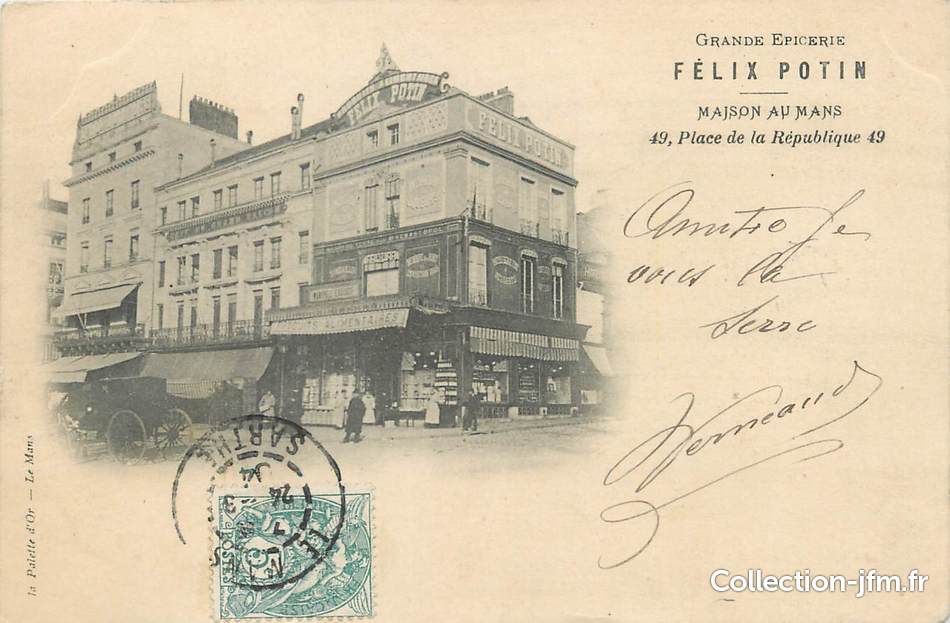 GRANDE EPICERIE
FÉLIX POTIN
MAISON AU MANS
49, Place de la République 49
FÉLIX POTIN
FÉLIX POTIN
ALIMENTAIRES
Amitié Je
vous la
serre
Verneaud
la Palette d'Or — Le Mans
LE MANS
SARTHE
24
POSTES
5
Collection-jfm.fr